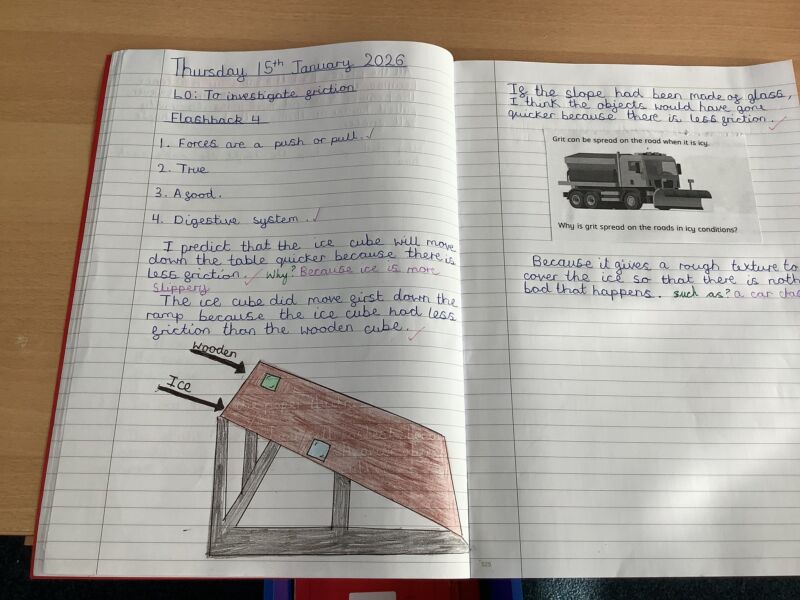 Thursday 15th January 2026
LO: To investigate friction
Flashback 4
1. Forces are a push or pull.
2. True
3. A food.
4. Digestive system.
I predict that the ice cube will move
down the table quicker because there is
less friction. Why? Because ice is more
slippery
The ice cube did move first down the
ramp because the ice cube had less
friction than the wooden cube.
Wooden
Ice
If the slope had been made of glass,
I think the objects would have gone
quicker because there is less friction.
Grit can be spread on the road when it is icy.
Why is grit spread on the roads in icy conditions?
Because it gives a rough texture to
cover the ice so that there is noth
bad that happens. such as? a car